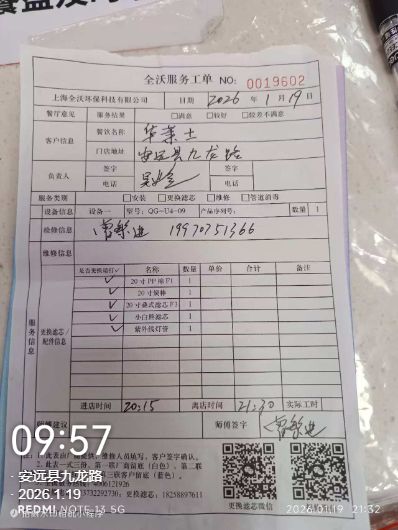 全沃服务工单 NO: 0019602
上海全沃环保科技有限公司 日期 2026 年 1 月 19 日
餐厅意见 服务结果 □满意 □较好 □较差不满意
客户信息 餐饮名称 华莱士
门店地址 安远县九龙路
负责人 签字
电话
服务类别 □安装 □更换滤芯 □维修 □管道消毒
设备信息 设备一 型号: QG-U4-09 产品序列号: 数量 1
检修信息 19970751366
维修信息
服务信息 更换滤芯/配件信息
是否更换请打√ 名称 数量 单价 合计 备注
✓ 20寸PP棉F1 1
✓ 20寸 1
✓ 20寸叠式滤芯F1 1
✓ 小白膜滤芯 1
✓ 紫外线灯管 1
进店时间 20:15 离店时间 21:30 实际工时
师傅签字
09:57
安远县九龙路
2026.1.19
REDMI NOTE 13 5G
2026.01.19 21:32
更换滤芯: 18258897611
更换滤芯微信